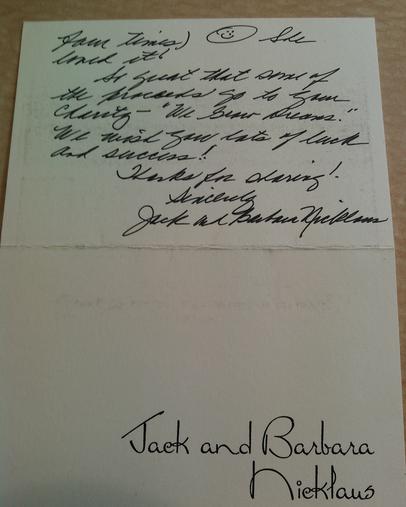 four times) She
loved it!
So great that some of
the proceeds go to your
Charity - "We Grow Dreams."
We wish you lots of luck
and success!
Thanks for sharing!
Sincerely
Jack and Barbara Nicklaus
Jack and Barbara
Nicklaus